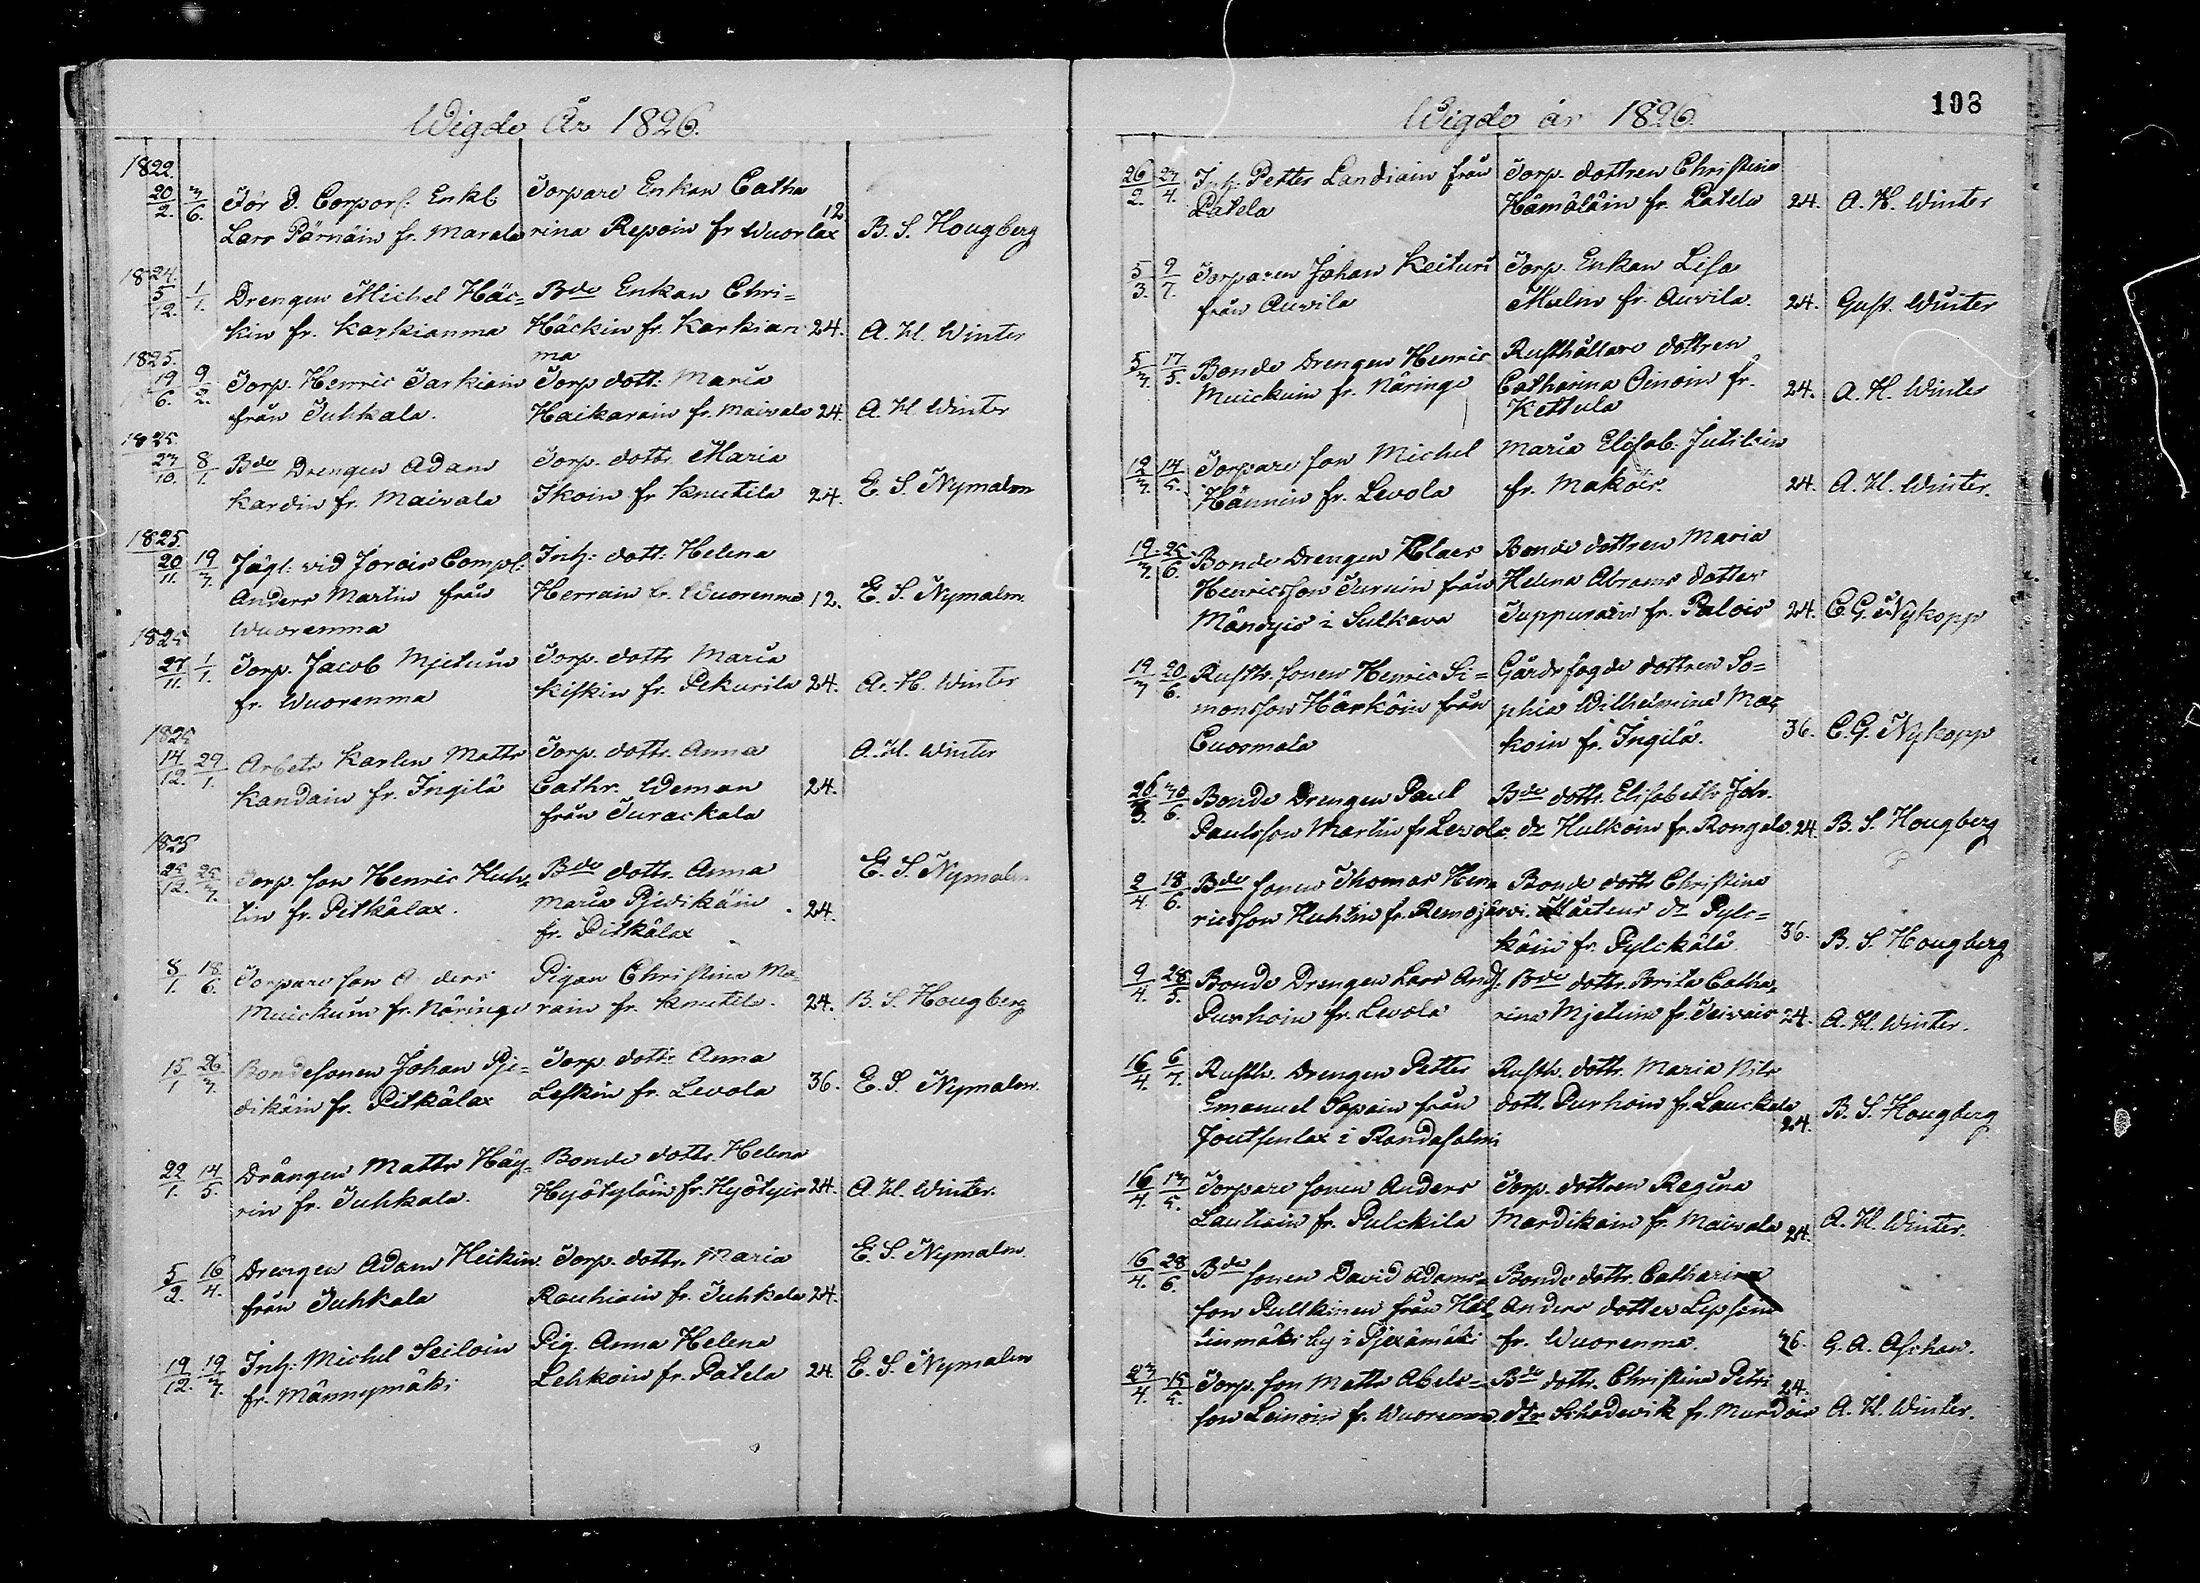 Wigde År 1826.
1822.
20/2. 3/6. För D. Corporl. Enkl. Torpare Enkan Catha
Lars Pärnäin fr. Marala rina Repoin fr Wuorlax 12 B. S. Hougberg
1824.
5/12. 1/1. Drengen Michel Häc= Bde Enkan Chri=
kin fr. Karkianma Häckin fr. Karkian 24. A. H. Winter
ma
1825.
19/6. 9/2. Torp. Henric Tarkiain Torp dott: Maria
från Tuhkala. Haikarain fr. Maivala 24 A. H Winter
1825.
23/10. 8/1. Bde Drengen Adam Torp. dottr Maria
Kardin fr. Maivala Ikoin fr Knutila 24. E. S. Nymalm
1825.
20/11. 19/3. Jägl: vid Jorois Compl: Inh: dott: Helena
Anders Martin från Herrain fr. Wuorenma 12. E. S. Nymalm.
Wuorenma
1825
27/11. 1/1. Torp. Jacob Mjetuin Torp. dottr Maria
fr. Wuorenma Kiskin fr. Pekurila 24. A. H. Winter
1825
14/12. 29/1. Arbets Karlen Matts Torp. dottr. Anna A. H. Winter
Kandain fr. Ingilä Cathr. Weman 24.
från Turackala
1825
25/12. 25/3. Torp. son Henric Huh= Bde dottr. Anna E. S. Nymalm
tin fr. Pitkälax. Maria Pjedikäin 24.
fr. Pitkälax
8/1. 18/6. Torpare son Anders Pigan Christina Ma=
Muickuin fr. Näringi rain fr. Knutila. 24. B. S. Hougberg
15/1 26/3. Bondesonen Johan Pje= Torp. dottr Anna
dikäin fr. Pitkälax Leskin fr. Levola 36. E. S Nymalm.
22/1. 14/5. Drängen Matts Häy= Bonde dottr. Helena
rin fr. Tuhkala. Hyötyläin fr. Hyötyis 24. A. H. Winter.
5/2. 16/4. Drengen Adam Heikin. Torp. dottr. Maria E. S. Nymalm.
från Tuhkala Rauhiain fr. Tuhkala 24.
19/12. 19/3. Inh: Michel Seiloin Pig. Anna Helena
fr. Männymäki Lehkoin fr. Patela 24. E. S. Nymalm
Wigde år 1826.
108
26/2. 23/4. Inh: Petter Landiain från Torp. dottren Christina
Patela Hämäläin fr. Patela 24. A. H. Winter
5/3. 9/7. Torparen Johan Keituri Torp. Enkan Lisa
från Auvila Malm fr. Auvila. 24. Gust. Winter
5/3. 17/5. Bonde Drengen Henric Rusthållare dottren
Muickuin fr. Näringi Catharina Oinoin fr. 24. A. H. Winter
Kettula
12/3. 14/5. Torpare son Michel Maria Elisab: Jutilain
Hännin fr. Levola fr. Makois. 24. A. H. Winter.
19/3. 25/6. Bonde Drengen Klaes Bonde dottren Maria
Henricsson Turuin från Helena Abrams dotter
Mändyis i Sulkava Tuppurain fr. Palois 24. C. G. Nykopp
19/3 20/6. Rusth. sonen Henric Si= Gårds fogde dottren So=
monsson Härköin från phia Wilhelmina Mac
Cuosmala koin fr. Ingilä. 36. C. G. Nykopp
26/3. 30/6. Bonde Drengen Paul Bde dottr. Elisabeth Joh.
Paulsson Martin fr Levola. dr Hulkoin fr. Rongala. 24. B. S. Hougberg
2/4. 18/6. Bde sonen Thomas Hen= Bonde dottr Christina
ricsson Huhtin fr. Remojärvi. Mårtens dr Pylc=
käin fr. Pylckälä. 36. B. S. Hougberg
9/4. 28/5. Bonde Drengen Lars And. Bde dottr. Brita Catha=
Purhoin fr. Levola rina Mjetuin fr. Teivais 24. A. H. Winter.
16/4. 6/7. Rusth. Drengen Petter Rusth. dottr. Maria Nils
Emanuel Sopain från dott. Purhoin fr. Lauckala 24. B. S. Hougberg
Joutsenlax i Randasalmi
16/4. 13/5. Torpare sonen Anders Torp. dottren Regina
Lautiain fr. Pulckila Mardikain fr. Maivala 24. A. H. Winter.
16/4. 28/6. Bde sonen David Adams= Bonde dottr. Catharina
son Pulkinen från Hal= Anders dotter Lipsain
linmäki by i Pjexämäki fr. Wuorenma. 36. G. A. Aschan.
23/4. 15/5. Torp. son Matts Abels= Bde dottr. Christina Petri 24.
son Leinoin fr. Wuorenma. dtr Schadewik fr. Murdois A. H. Winter.